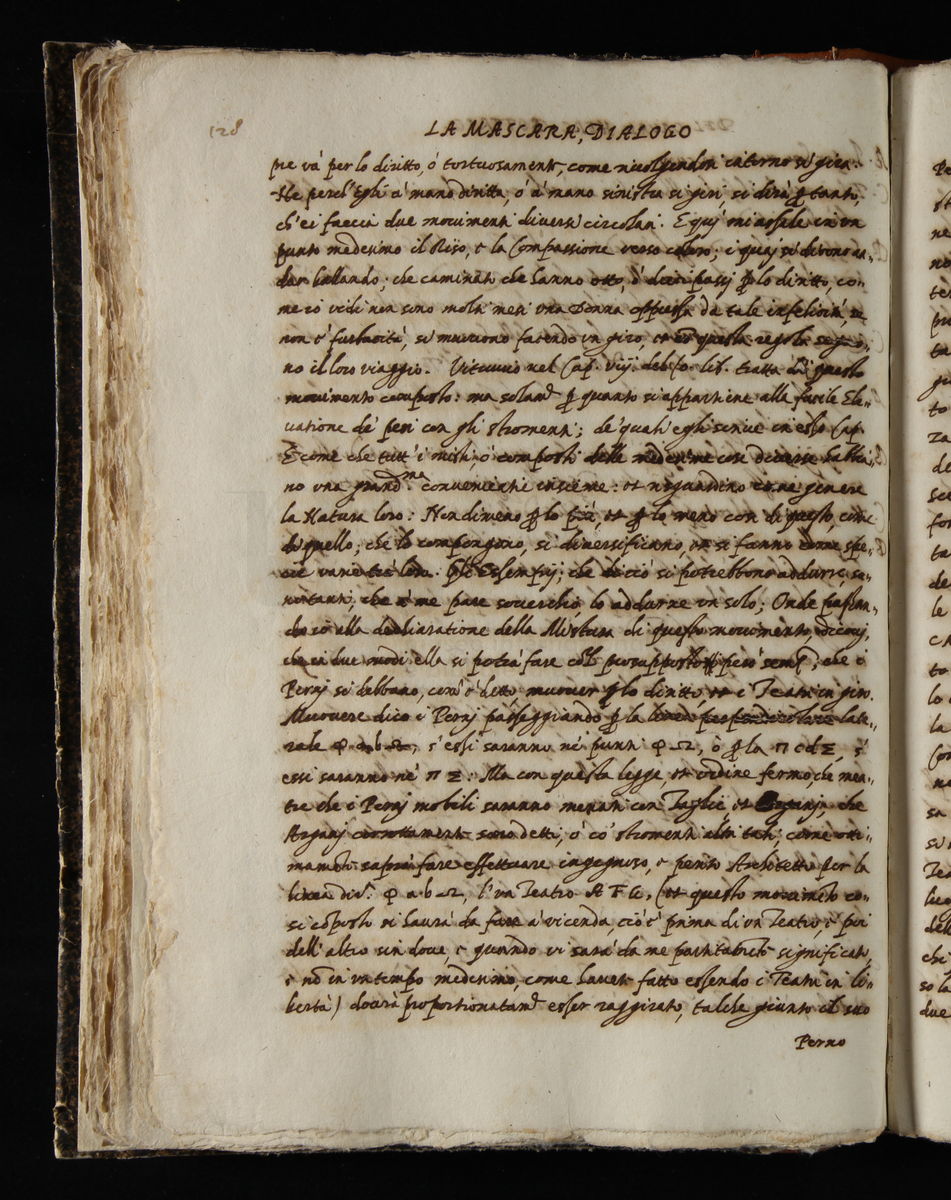 128
LA MASCARA, DIALOGO
pre và per lo diritto, ò tortuosamente, come rivolgendosi intorno si gira.
Ne perch' Egli à mano diritta, ò à mano sinistra si giri, si dirà tanto,
ch' ei faccia due movimenti diversi circolari. E quì mi assale in un
punto medesimo il Riso, e la Compassione verso coloro; i quaj si
dar ballando; che caminato che hanno otto, ò dieci passi lo diritto, co-
me io vidi non sono molti mesi una Donna oppressa da tale infelicità, se
non è furberia, si muovono facendo un giro, et questa regola seguo-
no il loro viaggio. Vitruvio nel Cap. viij. del Lib. tratta di questo
movimento composto: ma solam. quanto si appartiene alla facile Ele-
vatione de' pesi con gli stromenti; de' quali egli scrive in esso Cap.
E come che tutt' i misti, ò composti delle medesime cose diverse habbia-
no una grand.ma convenientia insieme: et riguardino come genere
la Natura loro: Nondimeno lo più, et lo meno con di questo, come
di quello; che lo compongono, si diversificano, et si fanno come spe-
cie varie trà loro. Gli Essempij; che di ciò si potrebbono addurre, so-
no tanti, che à me pare soverchio lo addurne un solo; Onde passan-
do io alla dechiaratione della Mistura di questo movimento, dicovj,
che in due modi ella si potrà fare però semp; che i
Pernj si debbano, com' è detto muover lo diritto, et i Teatri in giro.
Muovere dico i Pernj passeggiando la late-
rale φ a b Ω, s' essi saranno né punti φ Ω, ò la Π c d Σ, s'
essi saranno né Π Σ: Ma con questa legge et ordine fermo, che men-
tre che i Pernj mobili saranno menati con Taglie et Organj, che
Argani corrottamente sono detti, ò co' stromenti altri tali, come otti-
mamente saprà fare effettuare ingegnoso, e perito Architetto per la
linea div. φ a b Ω, l' un Teatro A F G, (et questo movimento co-
sì composto si haurà da fare à vicenda, ciò è prima di un Teatro, e poi
dell' altro sin dove, e quando vi sarà da me significato,
e nõ in un tempo medesimo, come havete fatto essendo i Teatri in li-
bertà) dovrà proportionatam. esser raggirato, talche giunto il suo
Perno